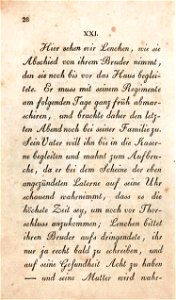 28
XXI.
Hier sehen wir Lenchen, wie sie
Abschied von ihrem Bruder nimmt,
den sie noch bis vor das Haus beglei-
tete. Er muss mit seinem Regimente
am folgenden Tage ganz früh abmar-
schiren, und brachte daher den letz-
ten Abend noch bei seiner Familie zu.
Sein Vater will ihn bis in die Kaser-
ne begleiten und mahnt zum Aufbru-
che, da er bei dem Scheine der eben
angezündeten Laterne auf seine Uhr
schauend wahrnimmt, dass es die
höchste Zeit sey, um noch vor Thor-
schluss anzukommen; Lenchen bittet
ihren Bruder aufs dringendste, ihr
nur ja recht bald zu schreiben, und
auf seine Gesundheit Acht zu haben
— und seine Mutter wird wahr-